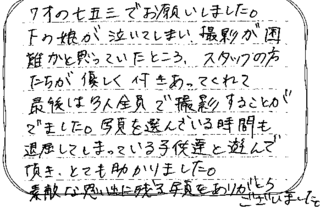 7才の七五三でお願いしました。
下の娘が泣いてしまい、撮影が困
難かと思っていたところ、スタッフの方
たちが優しく付きあってくれて
最後は3人全員で撮影することが
でました。写真を選んでいる時間も
退屈してしまっている子供達と遊んで
頂き、とても助かりました。
素敵な思い出に残る写真をありがとう
ございました。